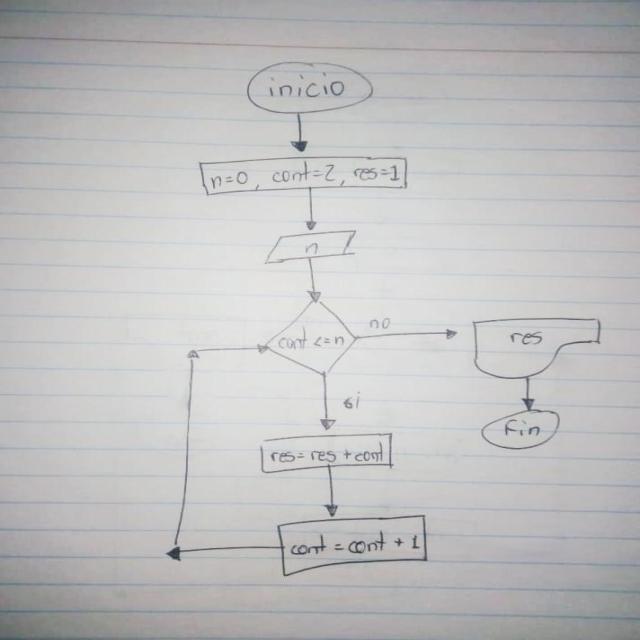 inicio
n=0, cont=2, res=1
n
cont <= n
no
res
si
Fin
res= res + cont
cont = cont + 1